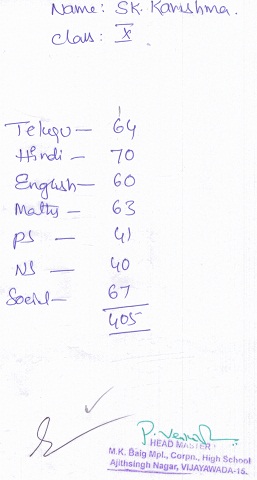 Name: SK. Karishma.
Class: X
Telugu — 64
Hindi — 70
English — 60
Maths — 63
PS — 41
NS — 40
Social — 67
405
HEAD MASTER
M.K. Baig Mpl., Corpn., High School
Ajithsingh Nagar, VIJAYAWADA-15.